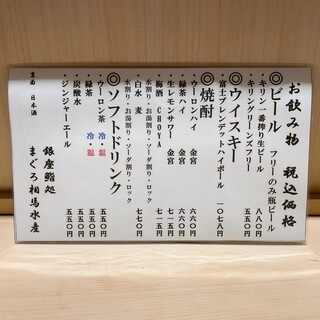 お飲み物　税込価格
◎ビール　フリーのみ瓶ビール
・キリン一番搾り生ビール　八八〇円
・キリングリーンズフリー　五五〇円
◎ウイスキー
・富士ブレンデットハイボール　一〇七八円
◎焼酎
・ウーロンハイ　金宮　六六〇円
・緑茶ハイ　金宮　六六〇円
・生レモンサワー　金宮　七一五円
・梅酒　CHOYA　七一五円
水割り・お湯割り・ソーダ割り・ロック
・白水　麦　七七〇円
水割り・お湯割り・ソーダ割り・ロック
◎ソフトドリンク
・ウーロン茶　冷・温　五五〇円
・緑茶　冷・温　五五〇円
・炭酸水　五五〇円
・ジンジャーエール　五五〇円
銀座鮨処
まぐろ相馬水産
裏面　日本酒